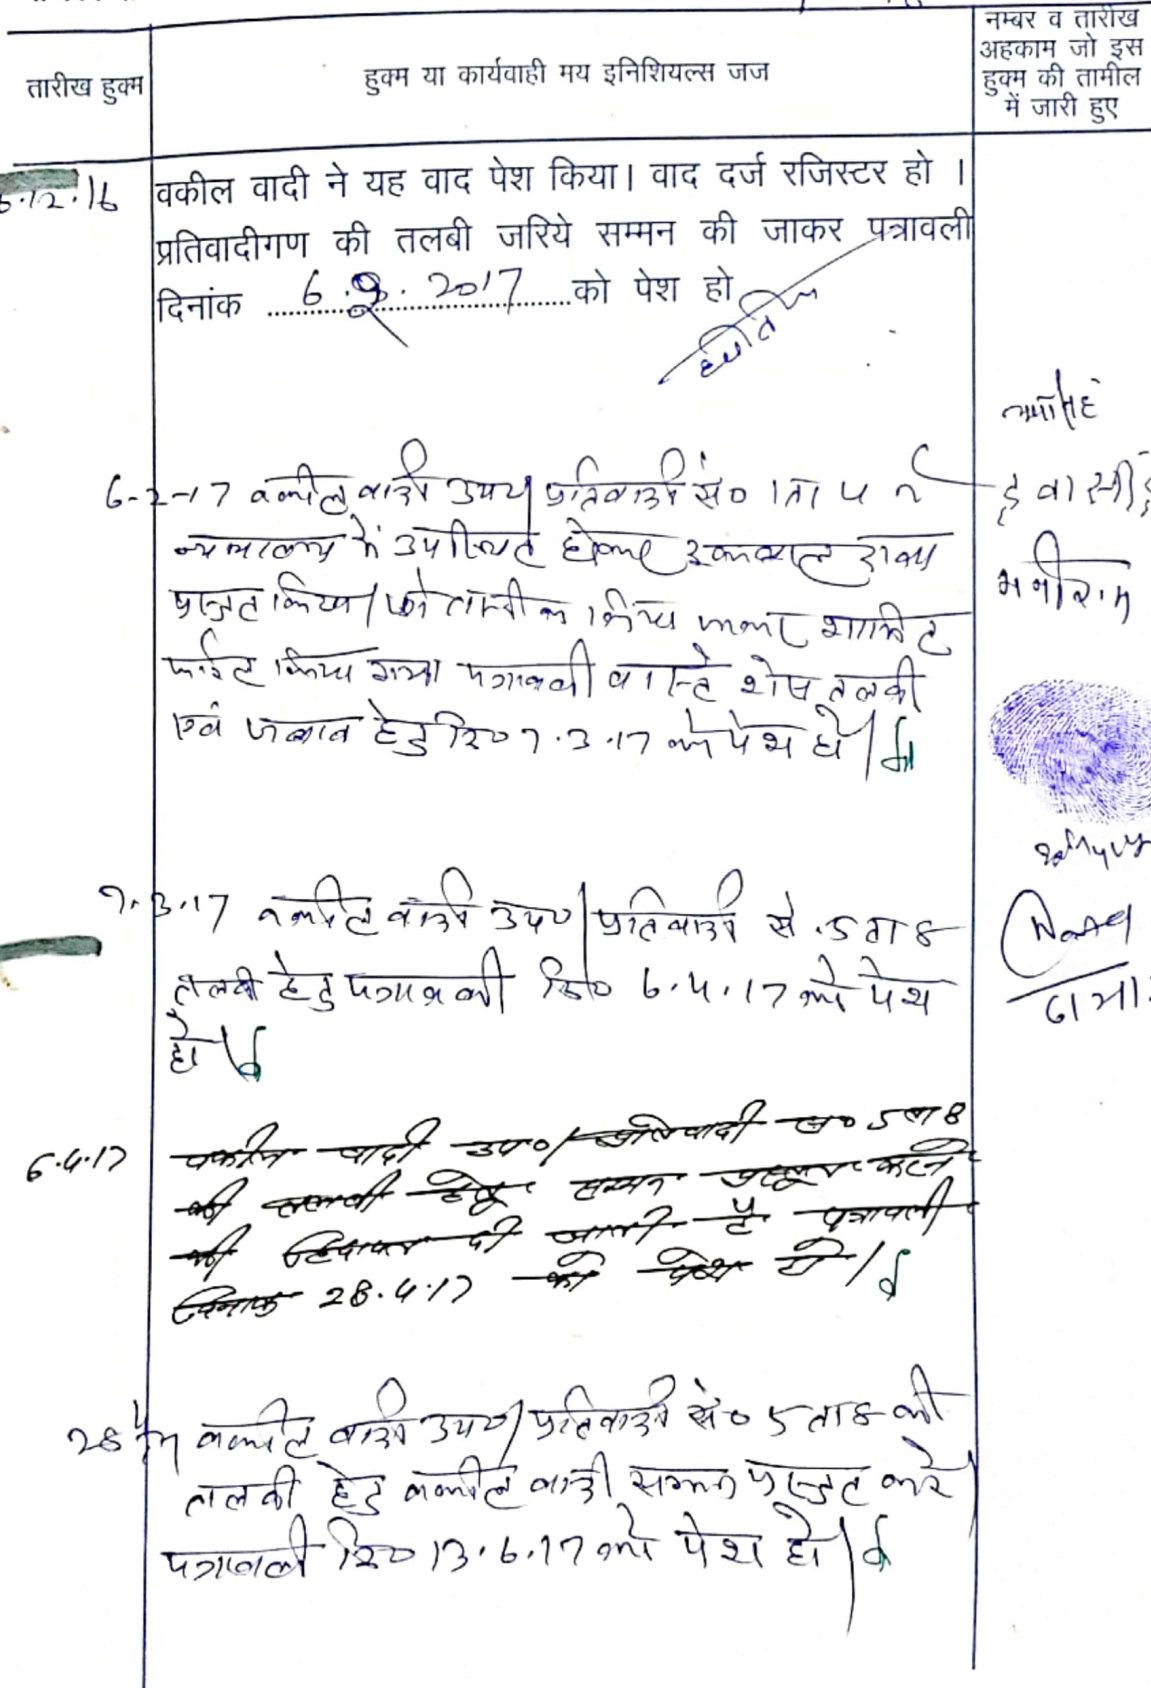 तारीख हुक्म
हुक्म या कार्यवाही मय इनिशियल्स जज
नम्बर व तारीख
अहकाम जो इस
हुक्म की तामील
में जारी हुए
.12.16
वकील वादी ने यह वाद पेश किया। वाद दर्ज रजिस्टर हो ।
प्रतिवादीगण की तलबी जरिये सम्मन की जाकर पत्रावली
दिनांक 6.2.2017 को पेश हो
6-2-17 वकील वादी उप0/ प्रतिवादी सं0 1 ता 4 ने
न्यायालय में उपस्थित होकर इकबाल दावा
प्रस्तुत किया/ शामिल
फाईल किया गया पत्रावली वास्ते शेष तलबी
एवं जवाब हेतु दि0 7.3.17 को पेश हो/
मनीराम
7.3.17 वकील वादी उप0/ प्रतिवादी सं. 5 ता 8
तलबी हेतु पत्रावली दि0 6.4.17 को पेश
हो/
6.4.17 वकील वादी उप0/ प्रतिवादी स0 5 ता 8
की तलबी हेतु सम्मन प्रस्तुत करने
की हिदायत दी जाती है पत्रावली
दिनांक 28.4.17 को पेश हो/
28/4/17 वकील वादी उप0/ प्रतिवादी सं0 5 ता 8 की
तलबी हेतु वकील वादी सम्मन प्रस्तुत करे
पत्रावली दि0 13.6.17 को पेश हो/